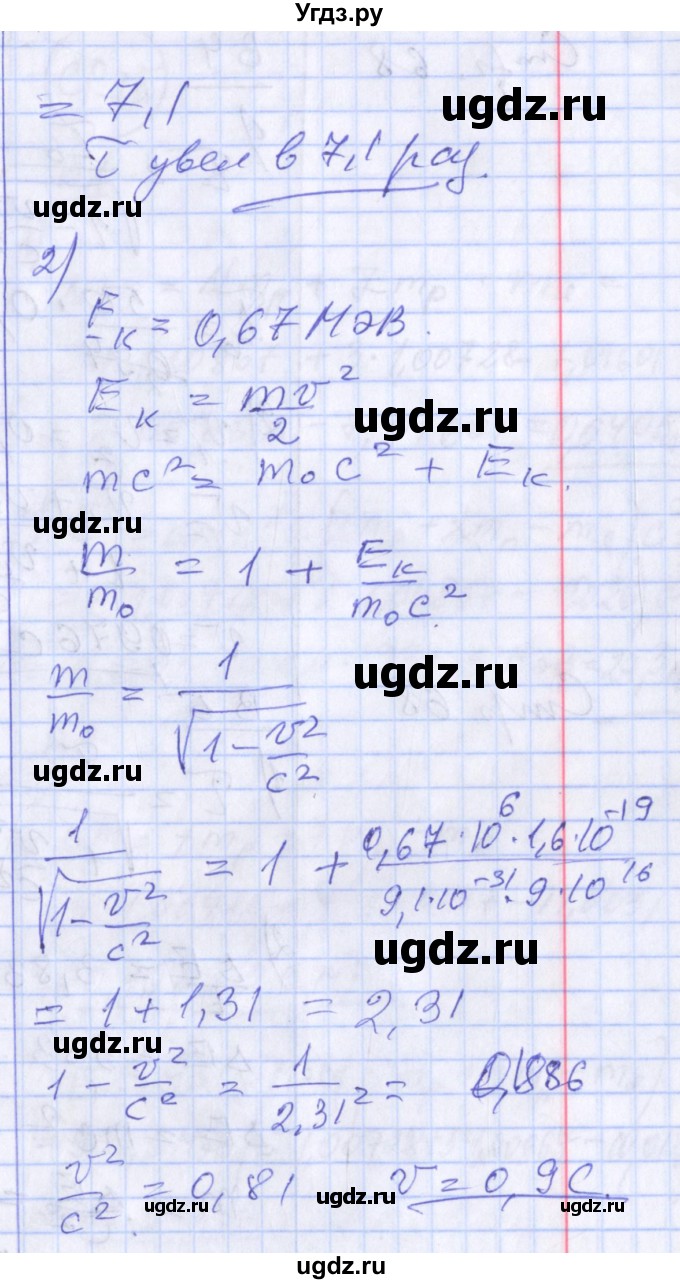 Угдз.ру
= 7,1
ugdz.ru
τ увел в 7,1 раз.
ugdz.ru
2)
E_к = 0,67 МэВ.
E_к = mv²/2
ugdz.ru
mc² = m₀c² + E_к.
ugdz.ru
m/m₀ = 1 + E_к/m₀c².
m/m₀ = 1/√(1 - v²/c²)
ugdz.ru
ugdz.ru
1/√(1 - v²/c²) = 1 + 0,67·10⁶·1,6·10⁻¹⁹/9,1·10⁻³¹·9·10¹⁶
ugdz.ru
= 1 + 1,31 = 2,31
ugdz.ru
1 - v²/c² = 1/2,31² =
v²/c² = 0,81 v = 0,9 c.
ugdz.ru
ugdz.ru
ugdz.ru
ugdz.ru